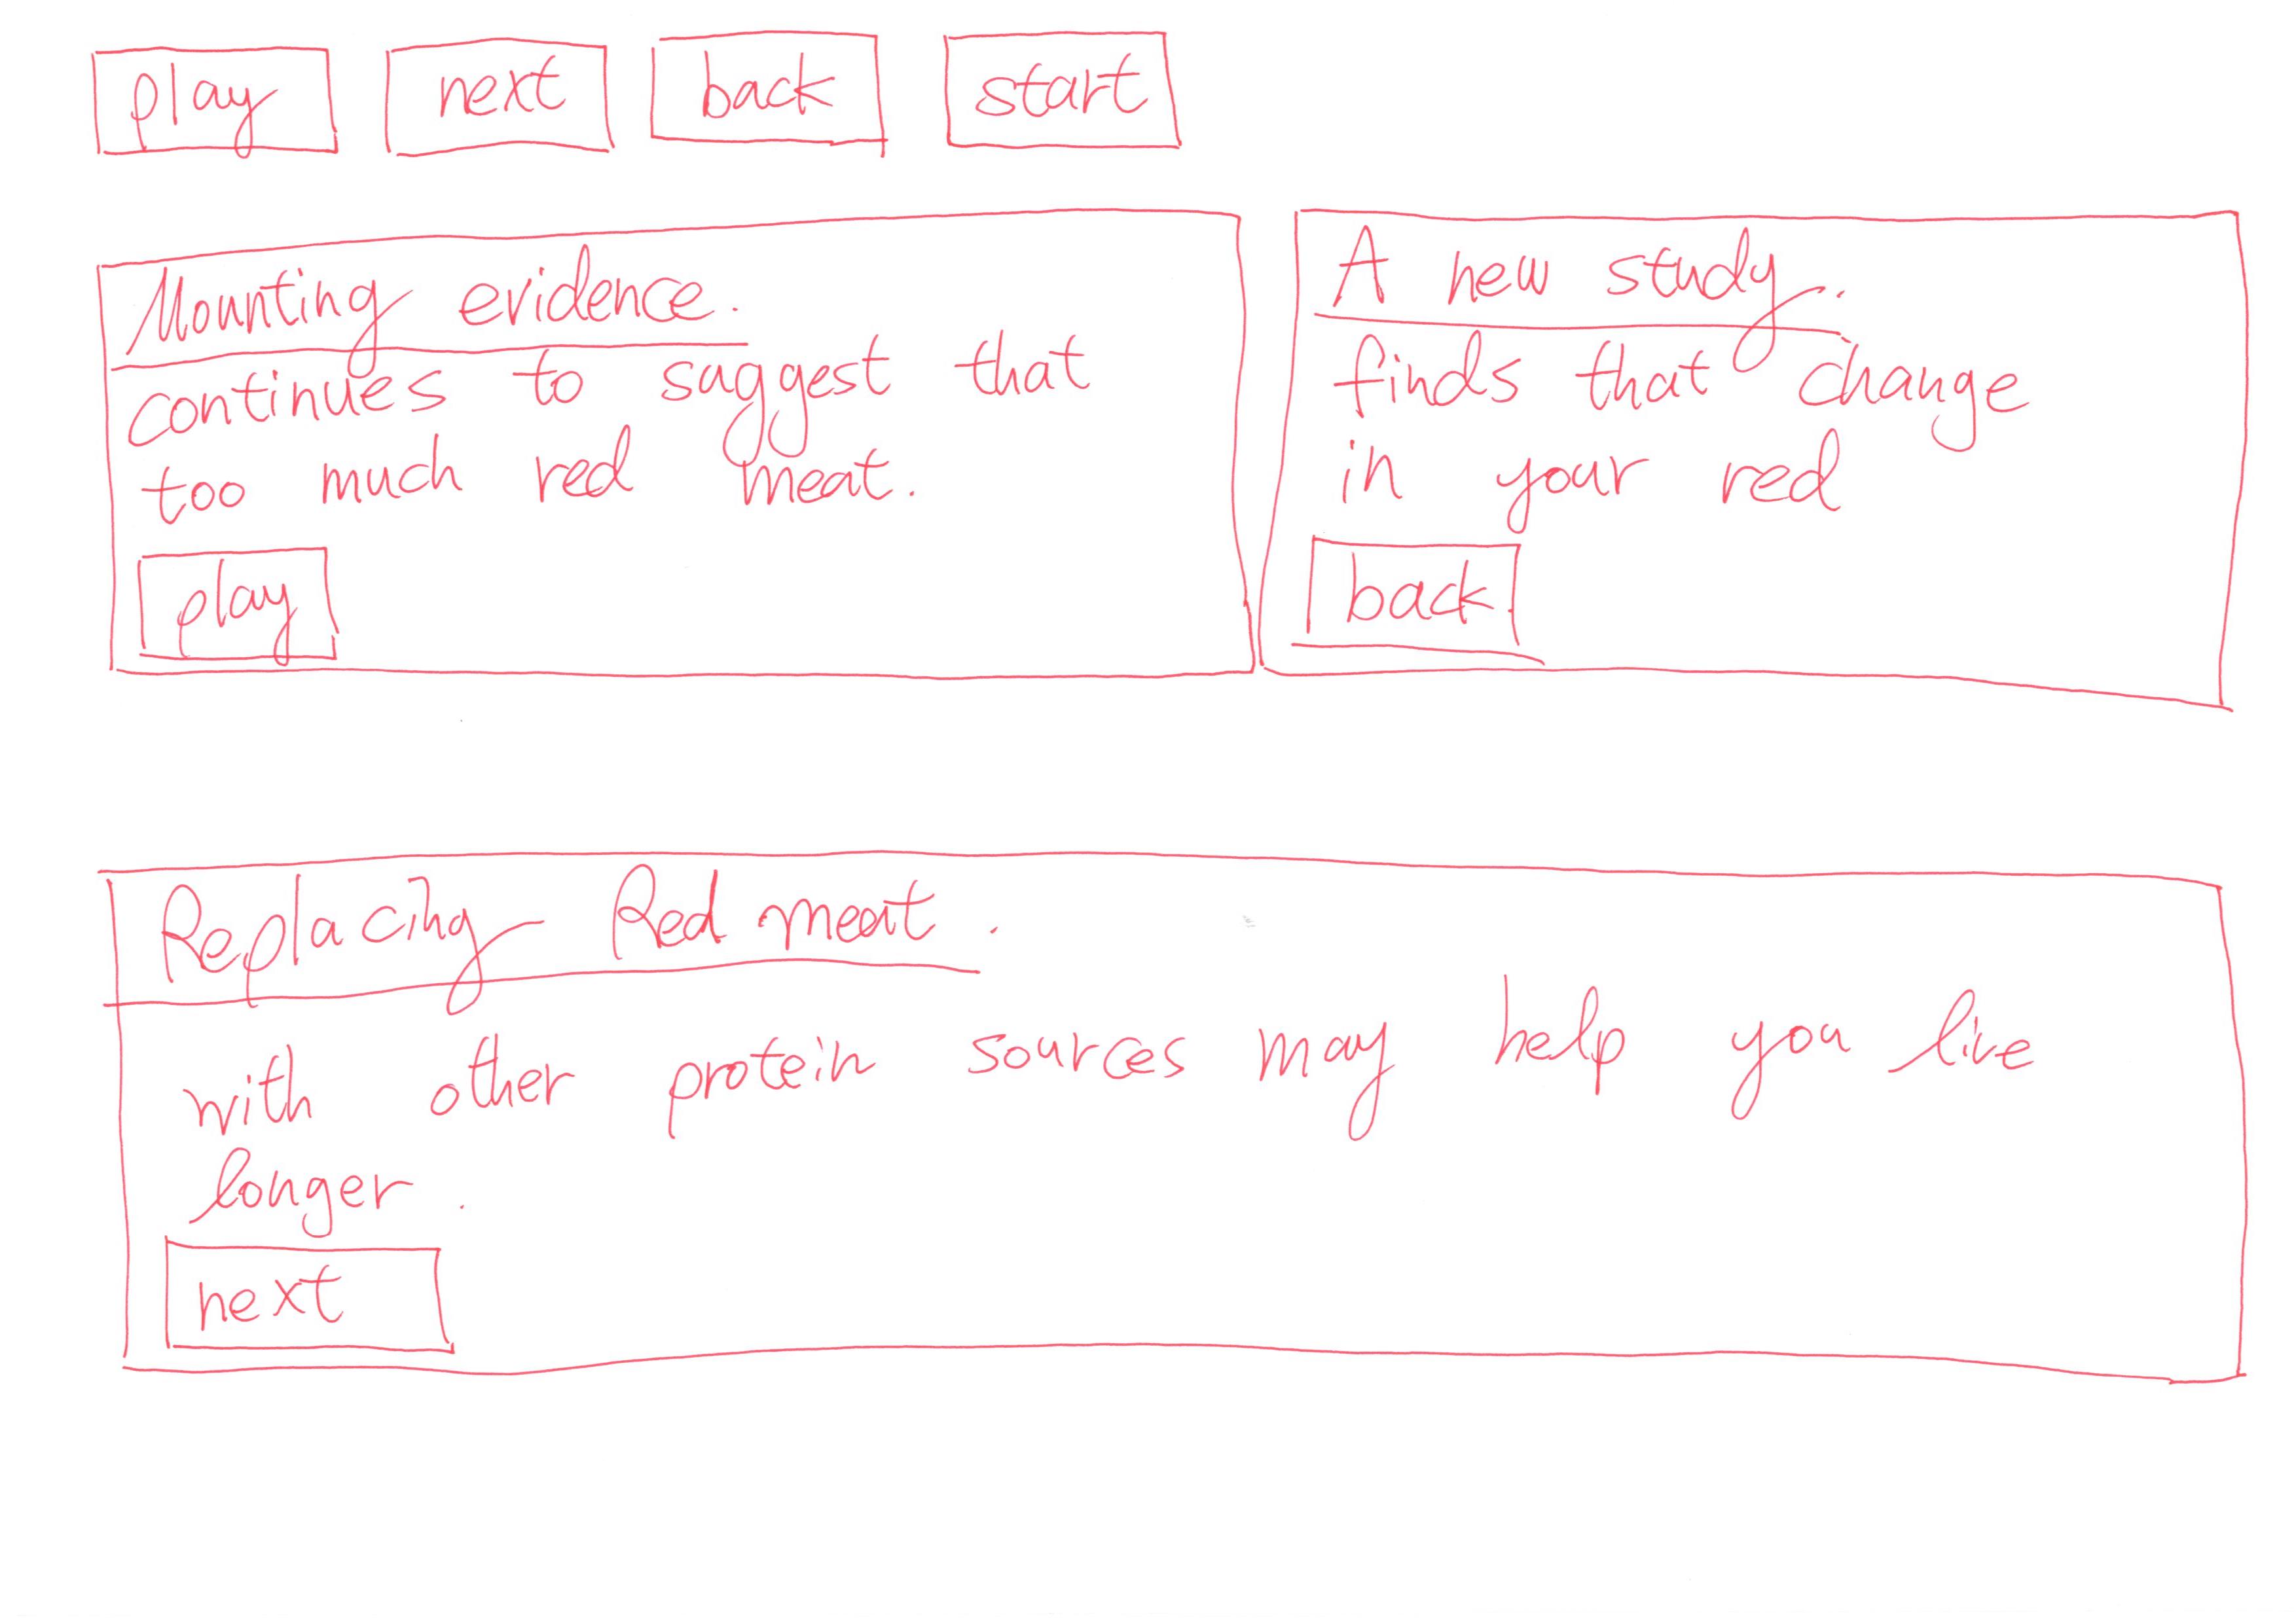 play next back start
Mounting evidence.
continues to suggest that
too much red meat.
play
A new study.
finds that change
in your red
back
Replacing Red meat.
with other protein sources may help you live
longer.
next